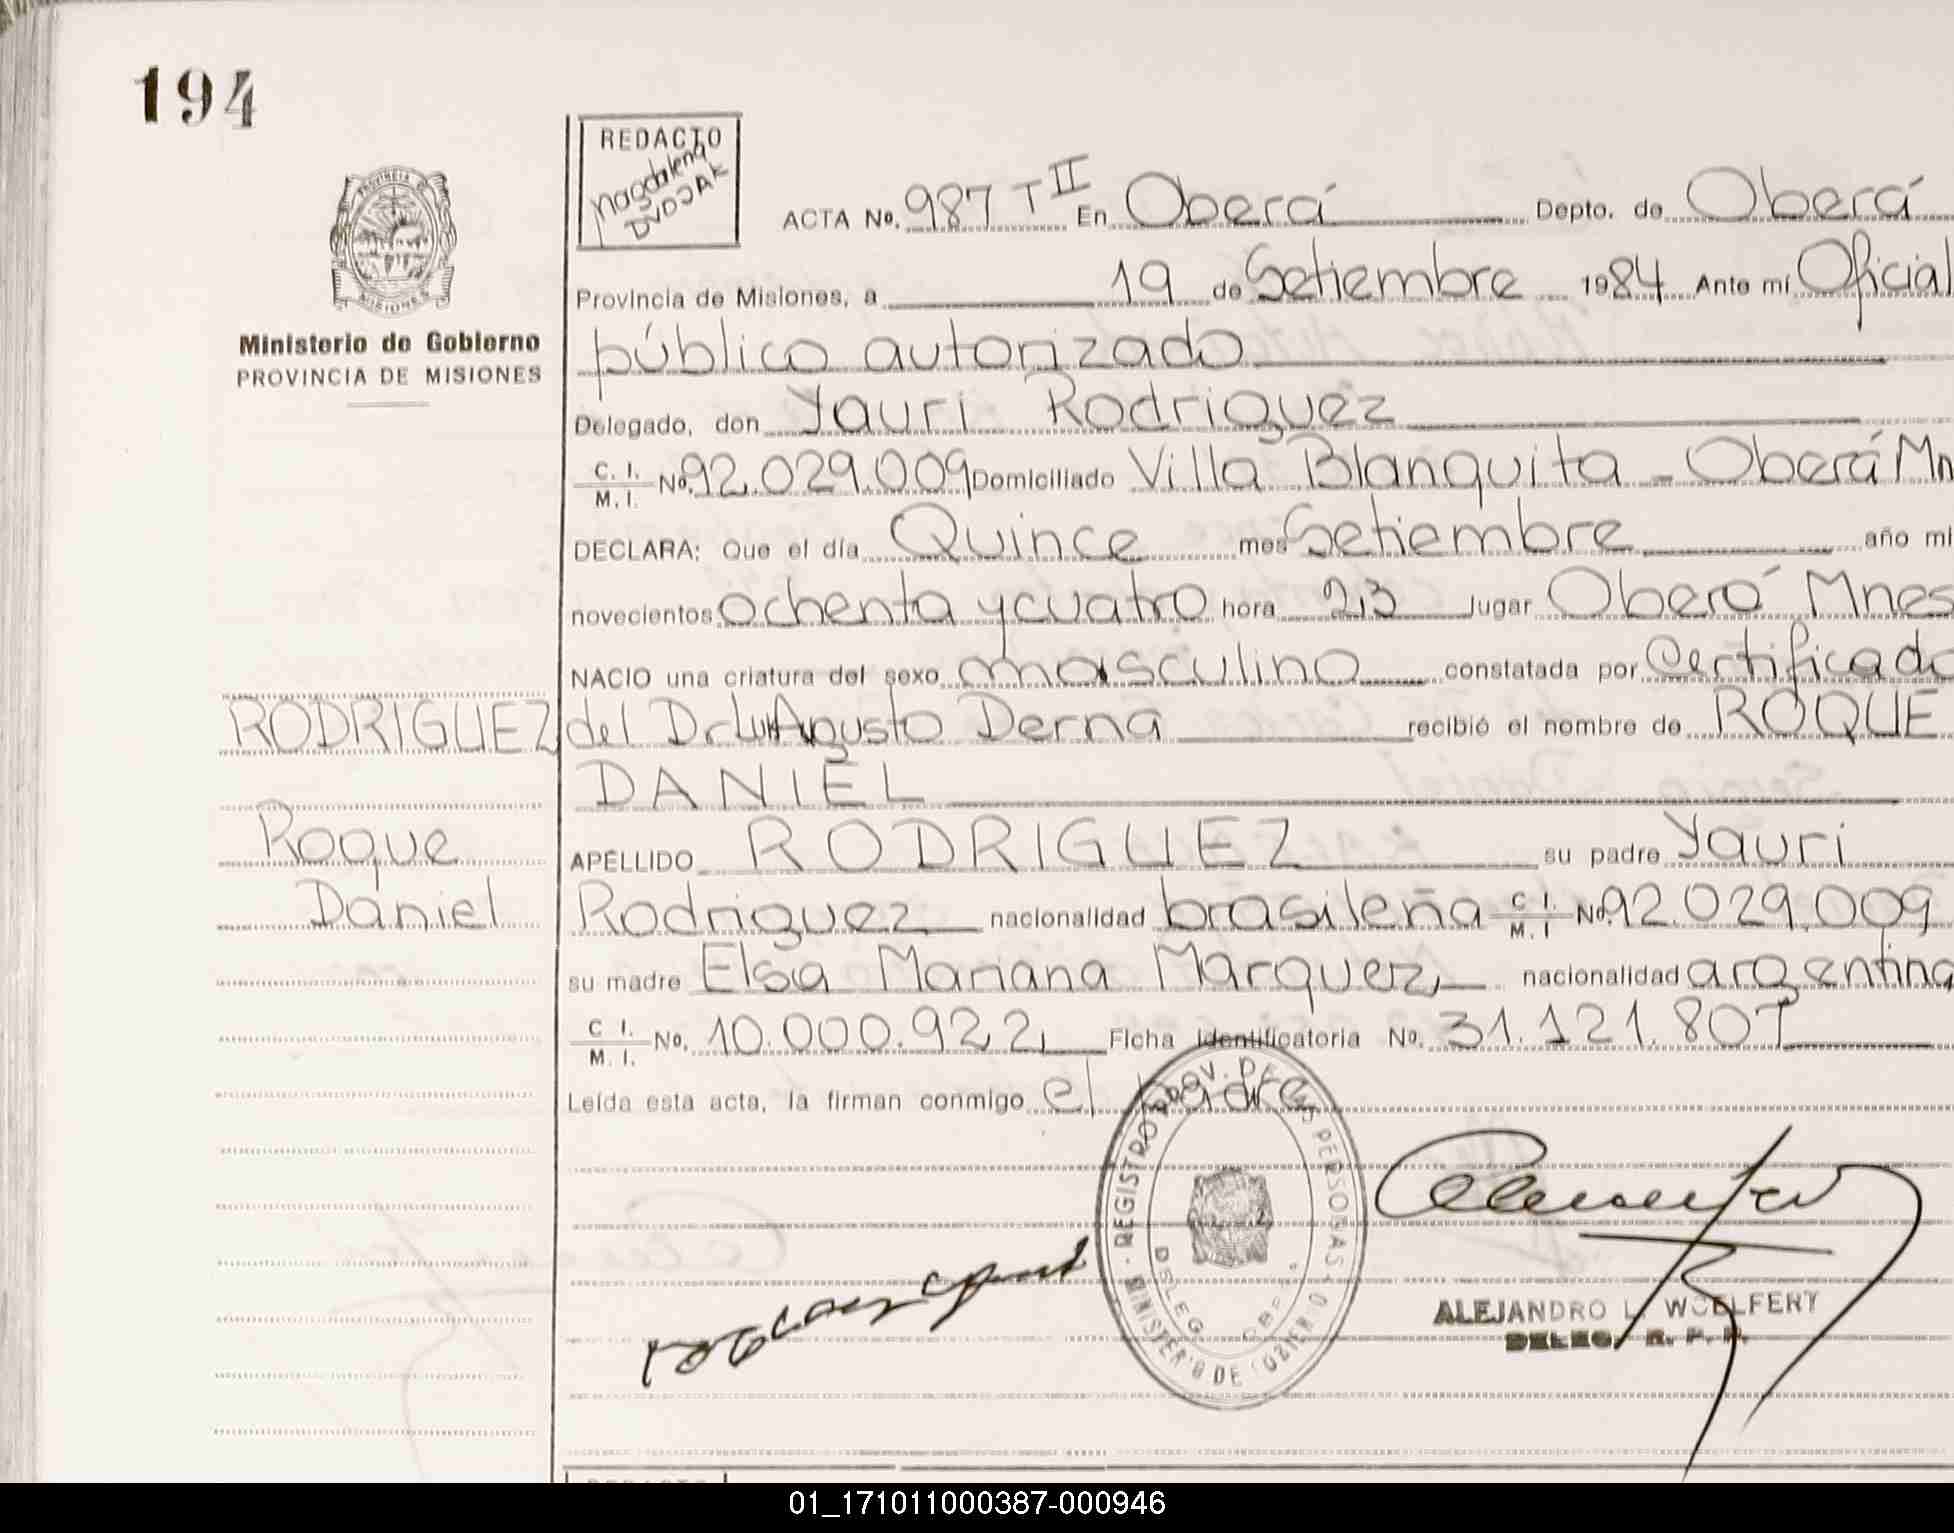 194
REDACTO
Magdalena
DVOJAK
ACTA No. 987 T II En Oberá Depto. de Oberá
PROVINCIA DE
MISIONES
Provincia de Misiones, a 19 de Setiembre 1984 Ante mí Oficial
Ministerio de Gobierno
PROVINCIA DE MISIONES
público autorizado
Delegado, don Yauri Rodriguez
C. I.
M. I. No. 92.029.009 Domiciliado Villa Blanquita - Oberá Mn
DECLARA: Que el día Quince mes Setiembre año mil
novecientos ochenta y cuatro hora 23 lugar Oberá Mnes
NACIO una criatura del sexo masculino constatada por Certificado
RODRIGUEZ
del Dr Luis Agusto Derna recibió el nombre de ROQUE
DANIEL
Roque
Daniel
APELLIDO RODRIGUEZ su padre Yauri
Rodriguez nacionalidad brasileña C. I. M. I No. 92.029.009
su madre Elsa Mariana Marquez nacionalidad argentina
C. I.
M. I. No. 10.000.922 Ficha Identificatoria No. 31.121.807
Leída esta acta, la firman conmigo el padre
REGISTRO PROV. DE LAS PERSONAS
DELEG. OBERA
MINISTERIO DE GOBIERNO
ALEJANDRO L. WOELFERT
DELEG. R. P. P.
REDACTO
01_171011000387-000946